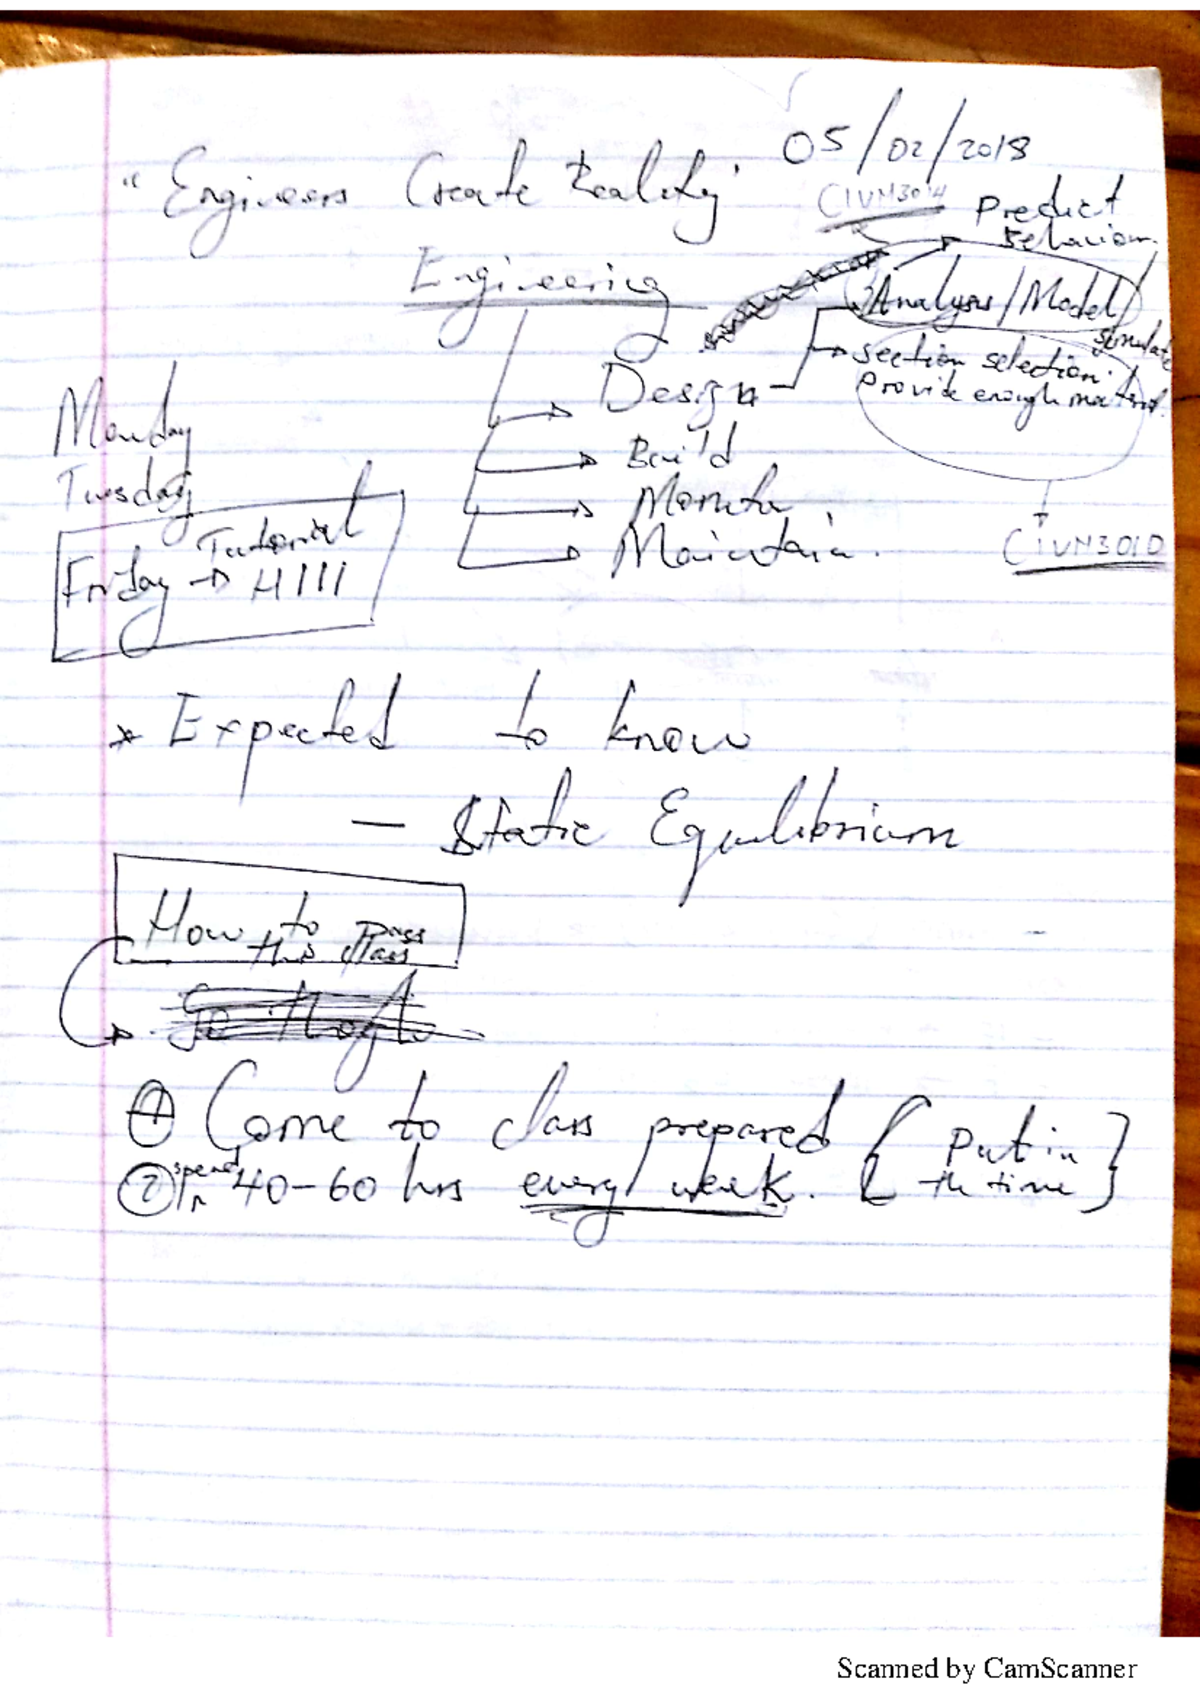 05/02/2018
"Engineers Create Reality"
CIVN3014
Predict
Behaviour.
Engineering
Analysis/Model/
Simulate
Design
section selection.
Provide enough material.
Monday
Build
Tuesday
Monitor
Tutorial
Maintain.
CIVN3010
Friday → H111
* Expected to know
— Static Equilibrium
How to pass
this class
① Come to class prepared [Put in
② spend 40-60 hrs every week. the time]
Scanned by CamScanner